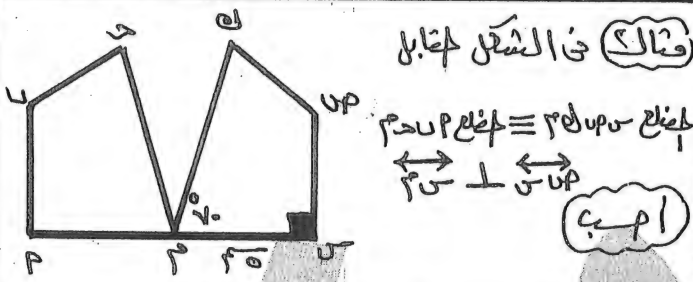 مثال٢ فى الشكل المقابل
المضلع س ص ك م ≡ المضلع م ب ح م
ص س ⊥ س م
ح ك
ب ص
٧٠°
م س